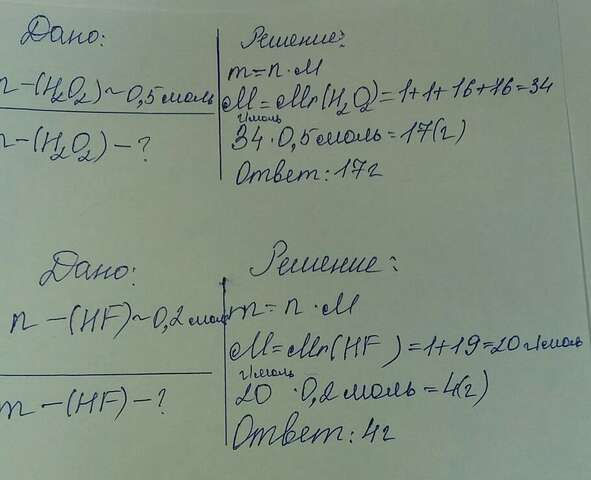 Дано:
n-(H₂O₂)~0,5 моль
m-(H₂O₂)-?
Решение:
m=n·M
M=Mr(H₂O₂)=1+1+16+16=34
г/моль
34·0,5 моль=17(г)
Ответ: 17г
Дано:
n-(HF)~0,2 моль
m-(HF)-?
Решение:
m=n·M
M=Mr(HF)=1+19=20 г/моль
г/моль
20·0,2 моль=4(г)
Ответ: 4г